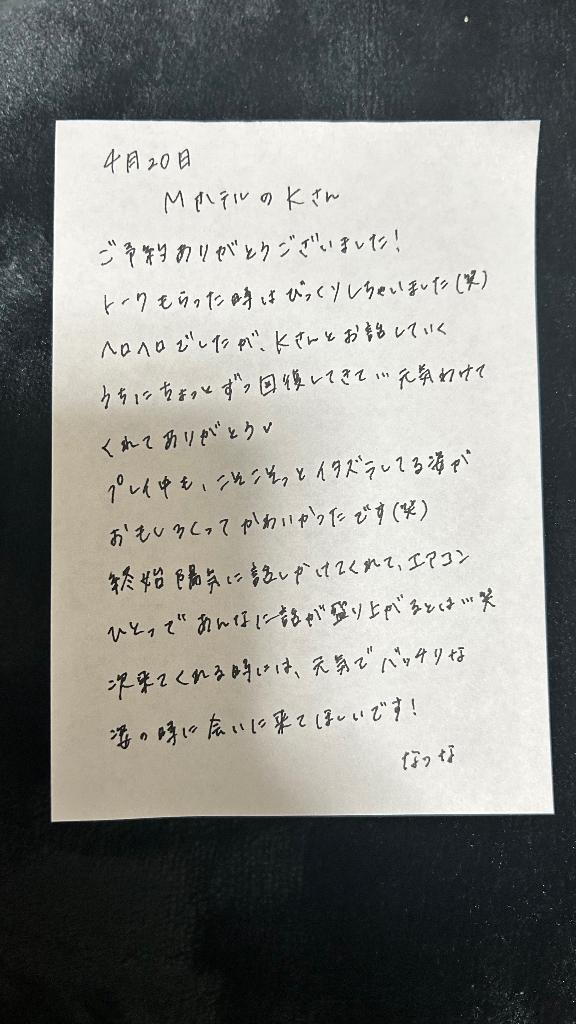 4月20日
MホテルのKさん
ご予約ありがとうございました!
トークもらった時はびっくりしちゃいました(笑)
ヘロヘロでしたが、Kさんとお話していく
うちにちょっとずつ回復してきて…元気わけて
くれてありがとう✓
プレイ中も、こそこそっとイタズラしてる姿が
おもしろくってかわいかったです(笑)
終始陽気に話しかけてくれて、エアコン
ひとつであんなに話が盛り上がるとは…笑
次来てくれる時には、元気でバッチリな
姿の時に会いに来てほしいです!
なつな